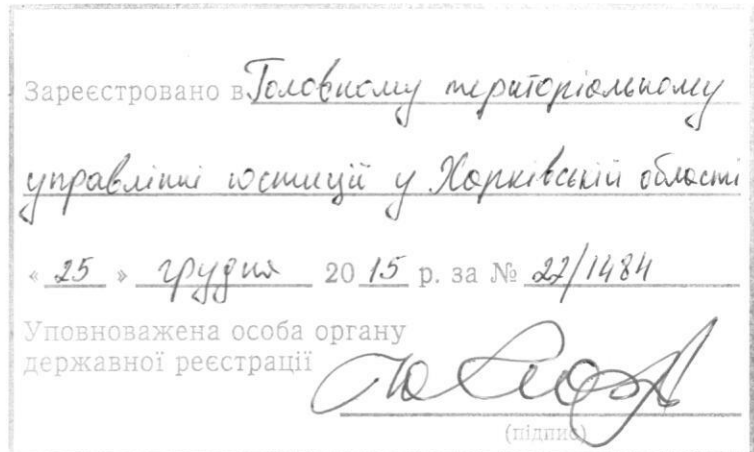 Зареєстровано в Головному територіальному
управлінні юстиції у Харківській області
« 25 » грудня 2015 р. за № 27/1484
Уповноважена особа органу
державної реєстрації
(підпис)